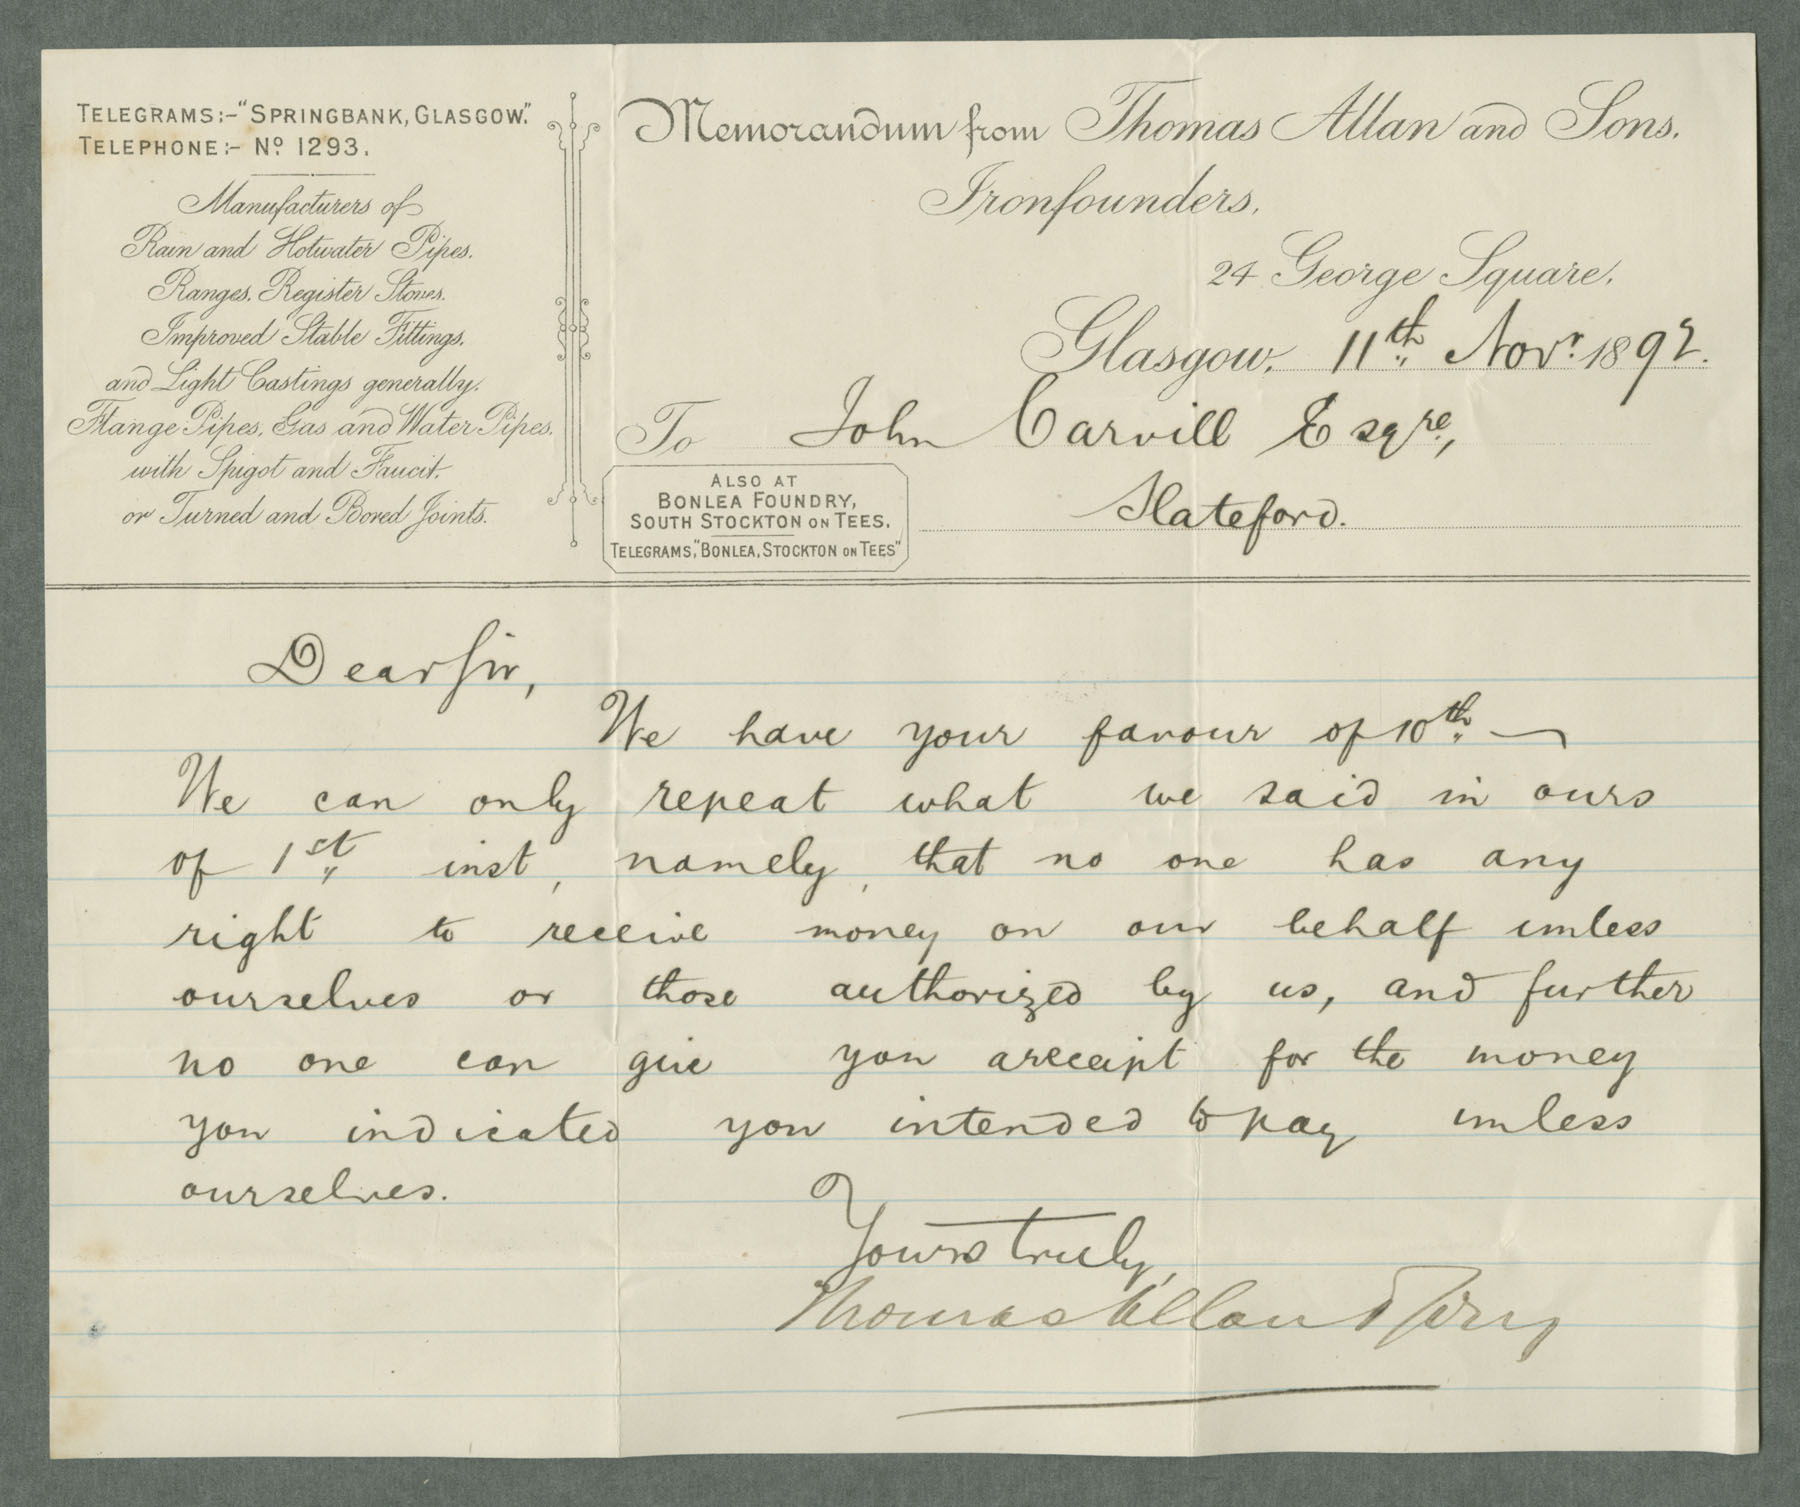 TELEGRAMS:-"SPRINGBANK, GLASGOW."
TELEPHONE:- No 1293.
Manufacturers of
Rain and Hotwater Pipes.
Ranges. Register Stoves.
Improved Stable Fittings.
and Light Castings generally.
Flange Pipes. Gas and Water Pipes.
with Spigot and Faucit.
or Turned and Bored Joints.
Memorandum from Thomas Allan and Sons.
Ironfounders.
24 George Square.
Glasgow. 11th Novr. 1892.
To John Carvill Esqre,
Slateford.
ALSO AT
BONLEA FOUNDRY,
SOUTH STOCKTON ON TEES.
TELEGRAMS, "BONLEA, STOCKTON ON TEES"
Dear Sir,
We have your favour of 10th —
We can only repeat what we said in ours
of 1st inst, namely, that no one has any
right to receive money on our behalf unless
ourselves or those authorized by us, and further
no one can give you a receipt for the money
you indicated you intended to pay unless
ourselves.
Yours truly,
Thomas Allan & Sons